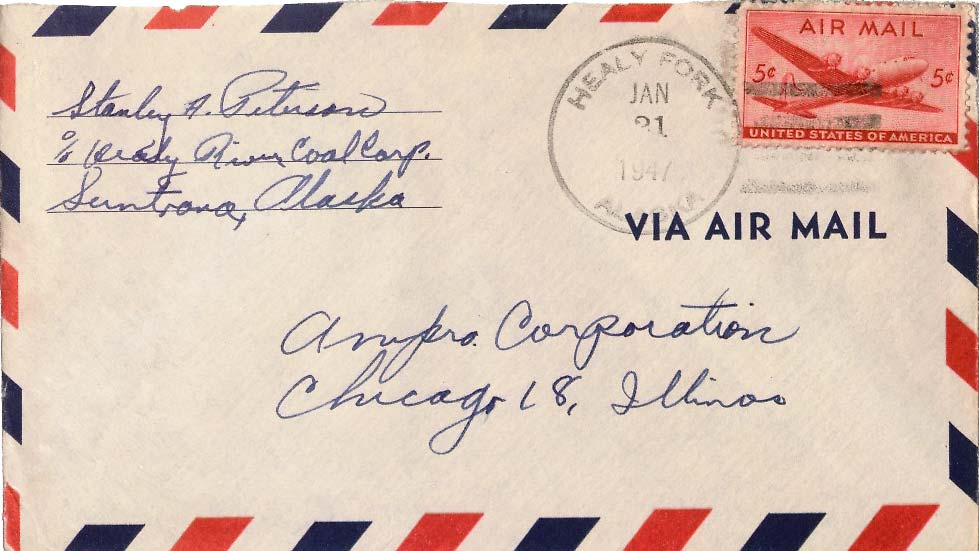 Stanley A. Peterson
c/o Healy River Coal Corp.
Suntrana, Alaska
HEALY FORK
JAN
31
1947
ALASKA
AIR MAIL
5¢ 5¢
UNITED STATES OF AMERICA
VIA AIR MAIL
Ampro Corporation
Chicago 18, Illinois